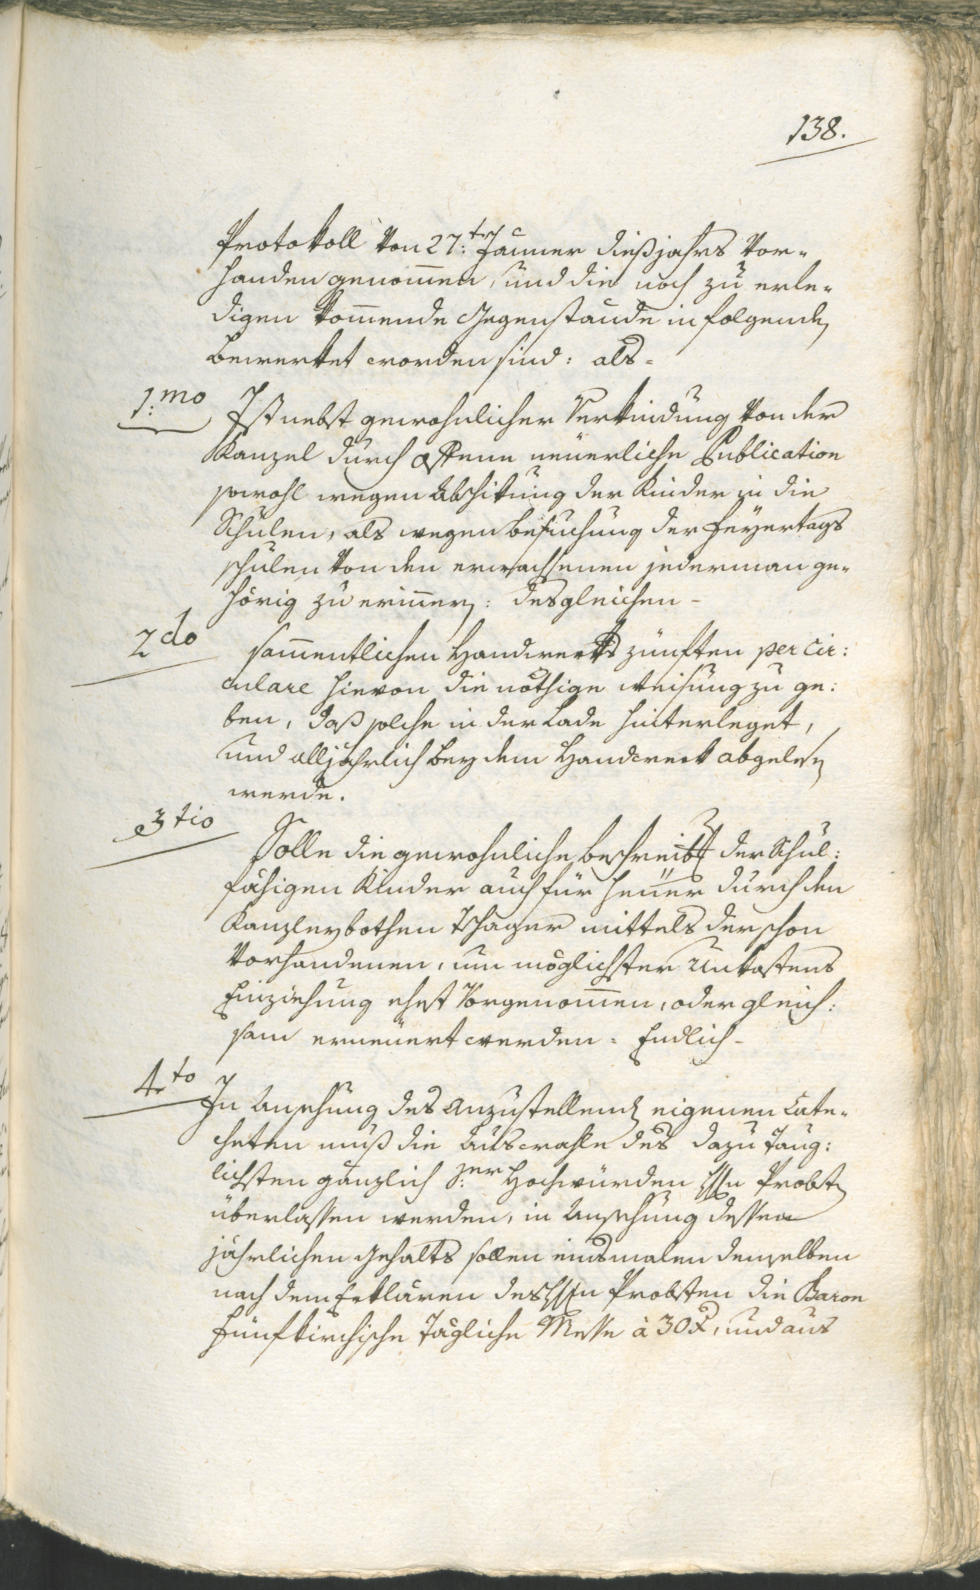 138.
Protokoll von 27:ten Jänner dießjahrs vor-
handen genom̄en, und die noch zu erle-
digen kom̄ende Gegenstände in folgenden
bemerket worden sind: als-
1:mo Ist nebst gewohnlicher Verkündung von der
Kanzel durch offene neuerliche Publication
sowohl wegen Abschikung der Kinder in die
Schulen, als wegen besuchung der Feyertags
schulen von den erwachsenen jederman ge-
hörig zu erinnern: desgleichen-
2do sam̄entlichen Handwerks zünften per cir:
culare hievon die nöthige weisung zu ge:
ben, daß solche in der Lade hinterleget,
und alljährlich bey dem Handwerk abgelesen
werde.
3tio Solle die gewohnliche beschreibung der Schul:
fähigen Kinder auch für heuer durch den
Kanzleybothen mittels der schon
vorhandenen, um möglichster Unkostens
Einziehung ehest vorgenom̄en, oder gleich:
sam erneuert werden. Endlich-
4to In Ansehung des anzustellenden eigenen Cate-
cheten muß die Auswahle des dazu taug:
lichsten gänzlich Sr Hochwürden Hrn Probsten
überlassen werden, in Ansehung dessen
jährlichen Gehalts sollen einsmalen denselben
nach dem Erklären des Hrn Probsten die Baron
Fünfkirchische tägliche Messe à 30 x, und aus